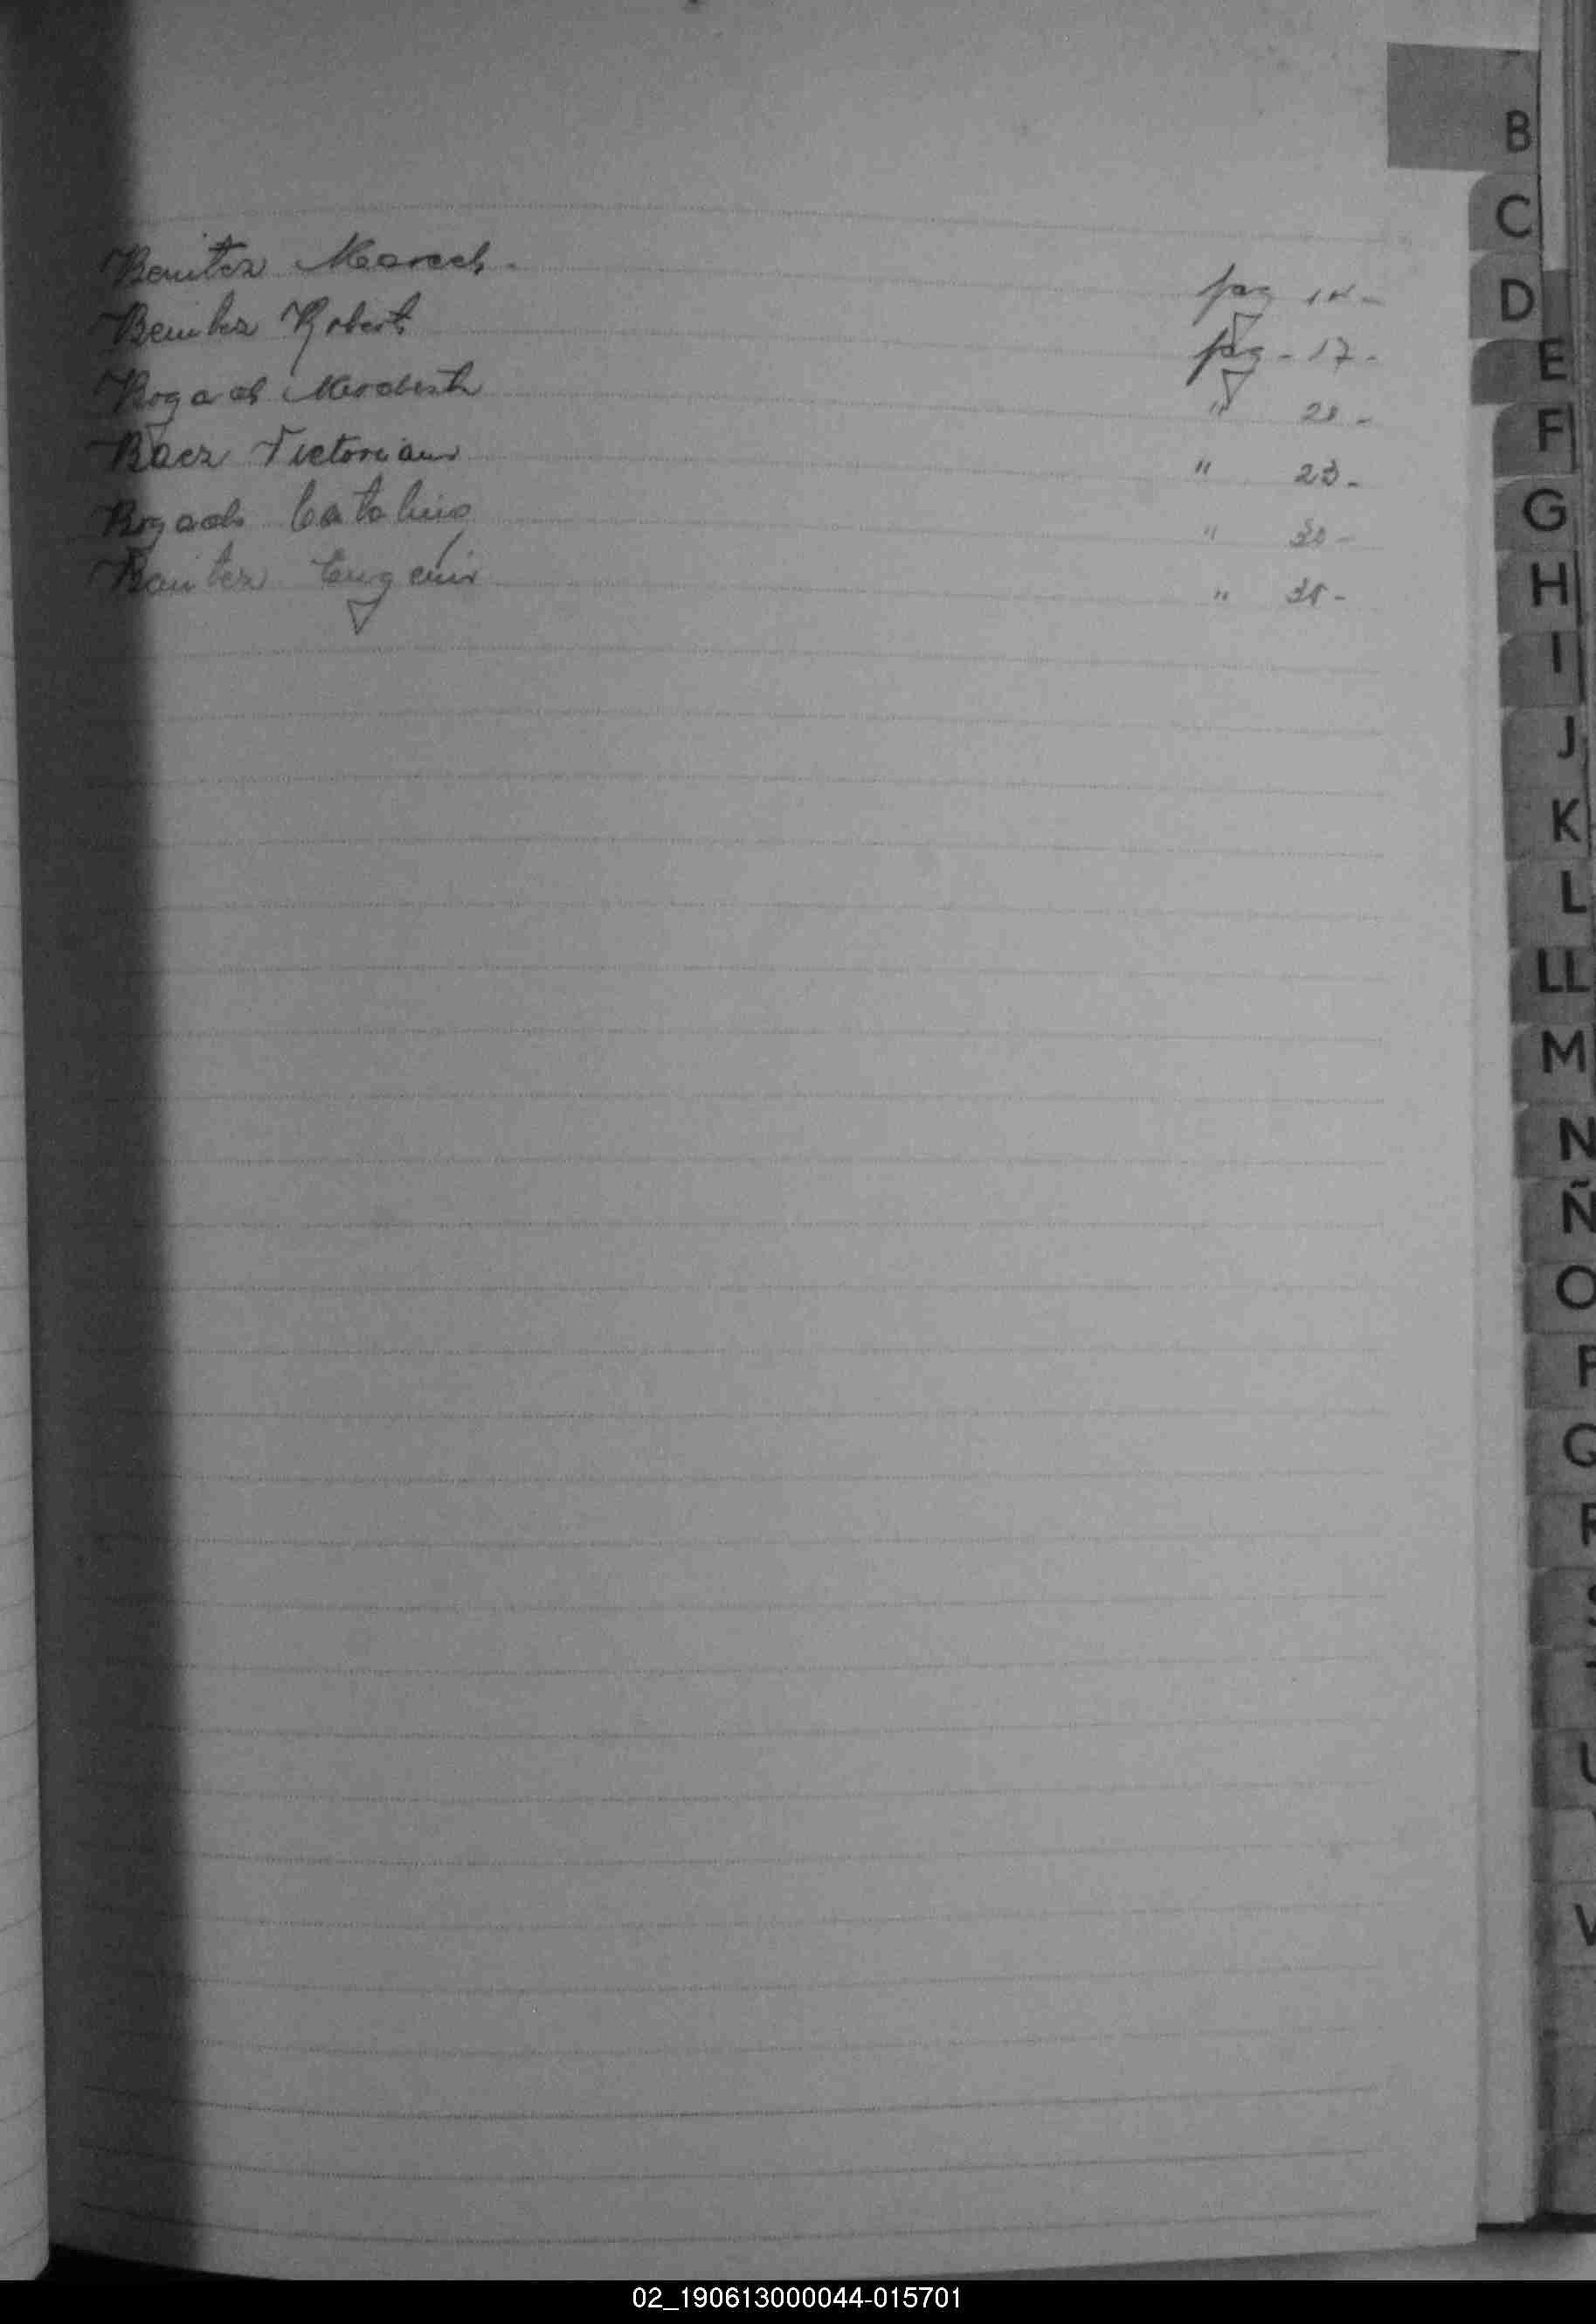 B
C
D
E
F
G
H
I
J
K
L
LL
M
N
Ñ
O
P
Q
R
S
T
U
V
Benitez Marcel. pag 14-
Benitez Robert pag - 17-
Bogado Modesto " 20 -
Baez Victoriano " 23-
Bogado Catalino " 30 -
Benitez Eugenio " 35-
02_190613000044-015701